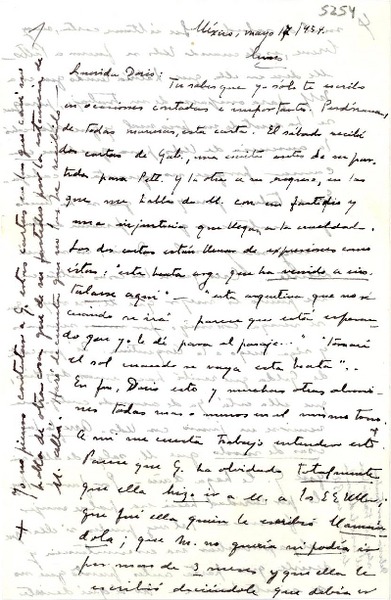 5254
México, mayo 17/1954.
Lunes
Querida Doris:
Tu sabes que yo solo te escribo
en ocasiones contadas e importantes. Perdóname,
de todas maneras, esta carta. El sábado recibí
dos cartas de Gab., una escrita antes de su par-
tida para Pett. y la otra a su regreso, en las
que me habla de M. con un partidis y
una injusticia que llegan a la crueldad.
Las dos cartas están llenas de expresiones como
estas: "esta beata arg. que ha venido a ins-
talarse aquí" — "esta argentina que no sé
cuando se irá; parece que está esperan-
do que yo le dé para el pasaje..." "Tomaré
el sol cuando se vaya esta beata"..
En fin, Doris esto y muchas otras
todas mas o menos en el mismo tono.
A mi me cuesta trabajo entender esto +
Parece que G. ha olvidado totalmente
que ella hizo ir a M. a los EEUU.;
que fué ella quien le escribió llamán-
dola; que M. no quería ni podía ir
por mas de 3 meses, y que ella le
escribió diciéndole que debía ir
+ Yo no pienso contestar a G. estas cartas en las que casi no
habla de otra cosa que de su por la estancia de
M. allá. Haré de cuenta que no las he recibido —